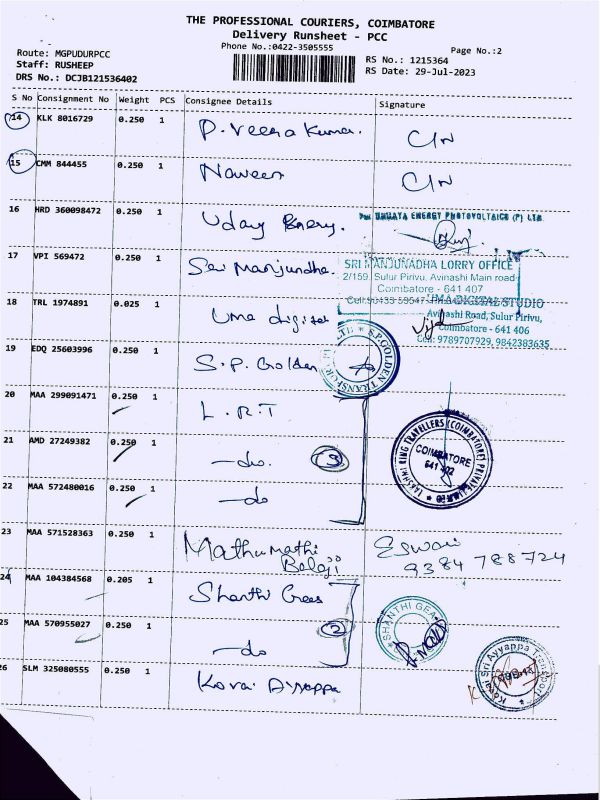 THE PROFESSIONAL COURIERS, COIMBATORE
Delivery Runsheet - PCC
Phone No.:0422-3505555
Page No.:2
Route: MGPUDURPCC
Staff: RUSHEEP
DRS No.: DCJB121536402
RS No.: 1215364
RS Date: 29-Jul-2023
S No Consignment No Weight PCS Consignee Details Signature
14 KLK 8016729 0.250 1 P. Veera Kumar. C/N
15 CMM 844455 0.250 1 Naveen C/N
16 HRD 360098472 0.250 1 Uday Energy.
ENERGY PHOTOVOLTAICS (P) LTD.
17 VPI 569472 0.250 1 Sri Manjundha.
SRI MANJUNADHA LORRY OFFICE
2/159, Sulur Pirivu, Avinashi Main road
Coimbatore - 641 407
Cell:90433 59547
18 TRL 1974891 0.025 1 Uma digital
UMA DIGITAL STUDIO
Avinashi Road, Sulur Pirivu,
Coimbatore - 641 406
Cell: 9789707929, 9842383635
19 EDQ 25603996 0.250 1 S.P. Golden
S.P.GOLDEN TRANSPORT
20 MAA 299091471 0.250 1 L.R.T
21 AMD 27249382 0.250 1 -do. 3
LAKSHMI RING TRAVELLERS (COIMBATORE) PRIVATE LIMITED
COIMBATORE
641 402
22 MAA 572480016 0.250 1 -do
23 MAA 571528363 0.250 1 Mathumathi
Balaji
Eswari
9384 788724
24 MAA 104384568 0.205 1 Shanthi Gears
25 MAA 570955027 0.250 1 -do 2
SHANTHI GEA
26 SLM 325080555 0.250 1 Kovai Ayyappa
Kovai Sri Ayyappa Transport